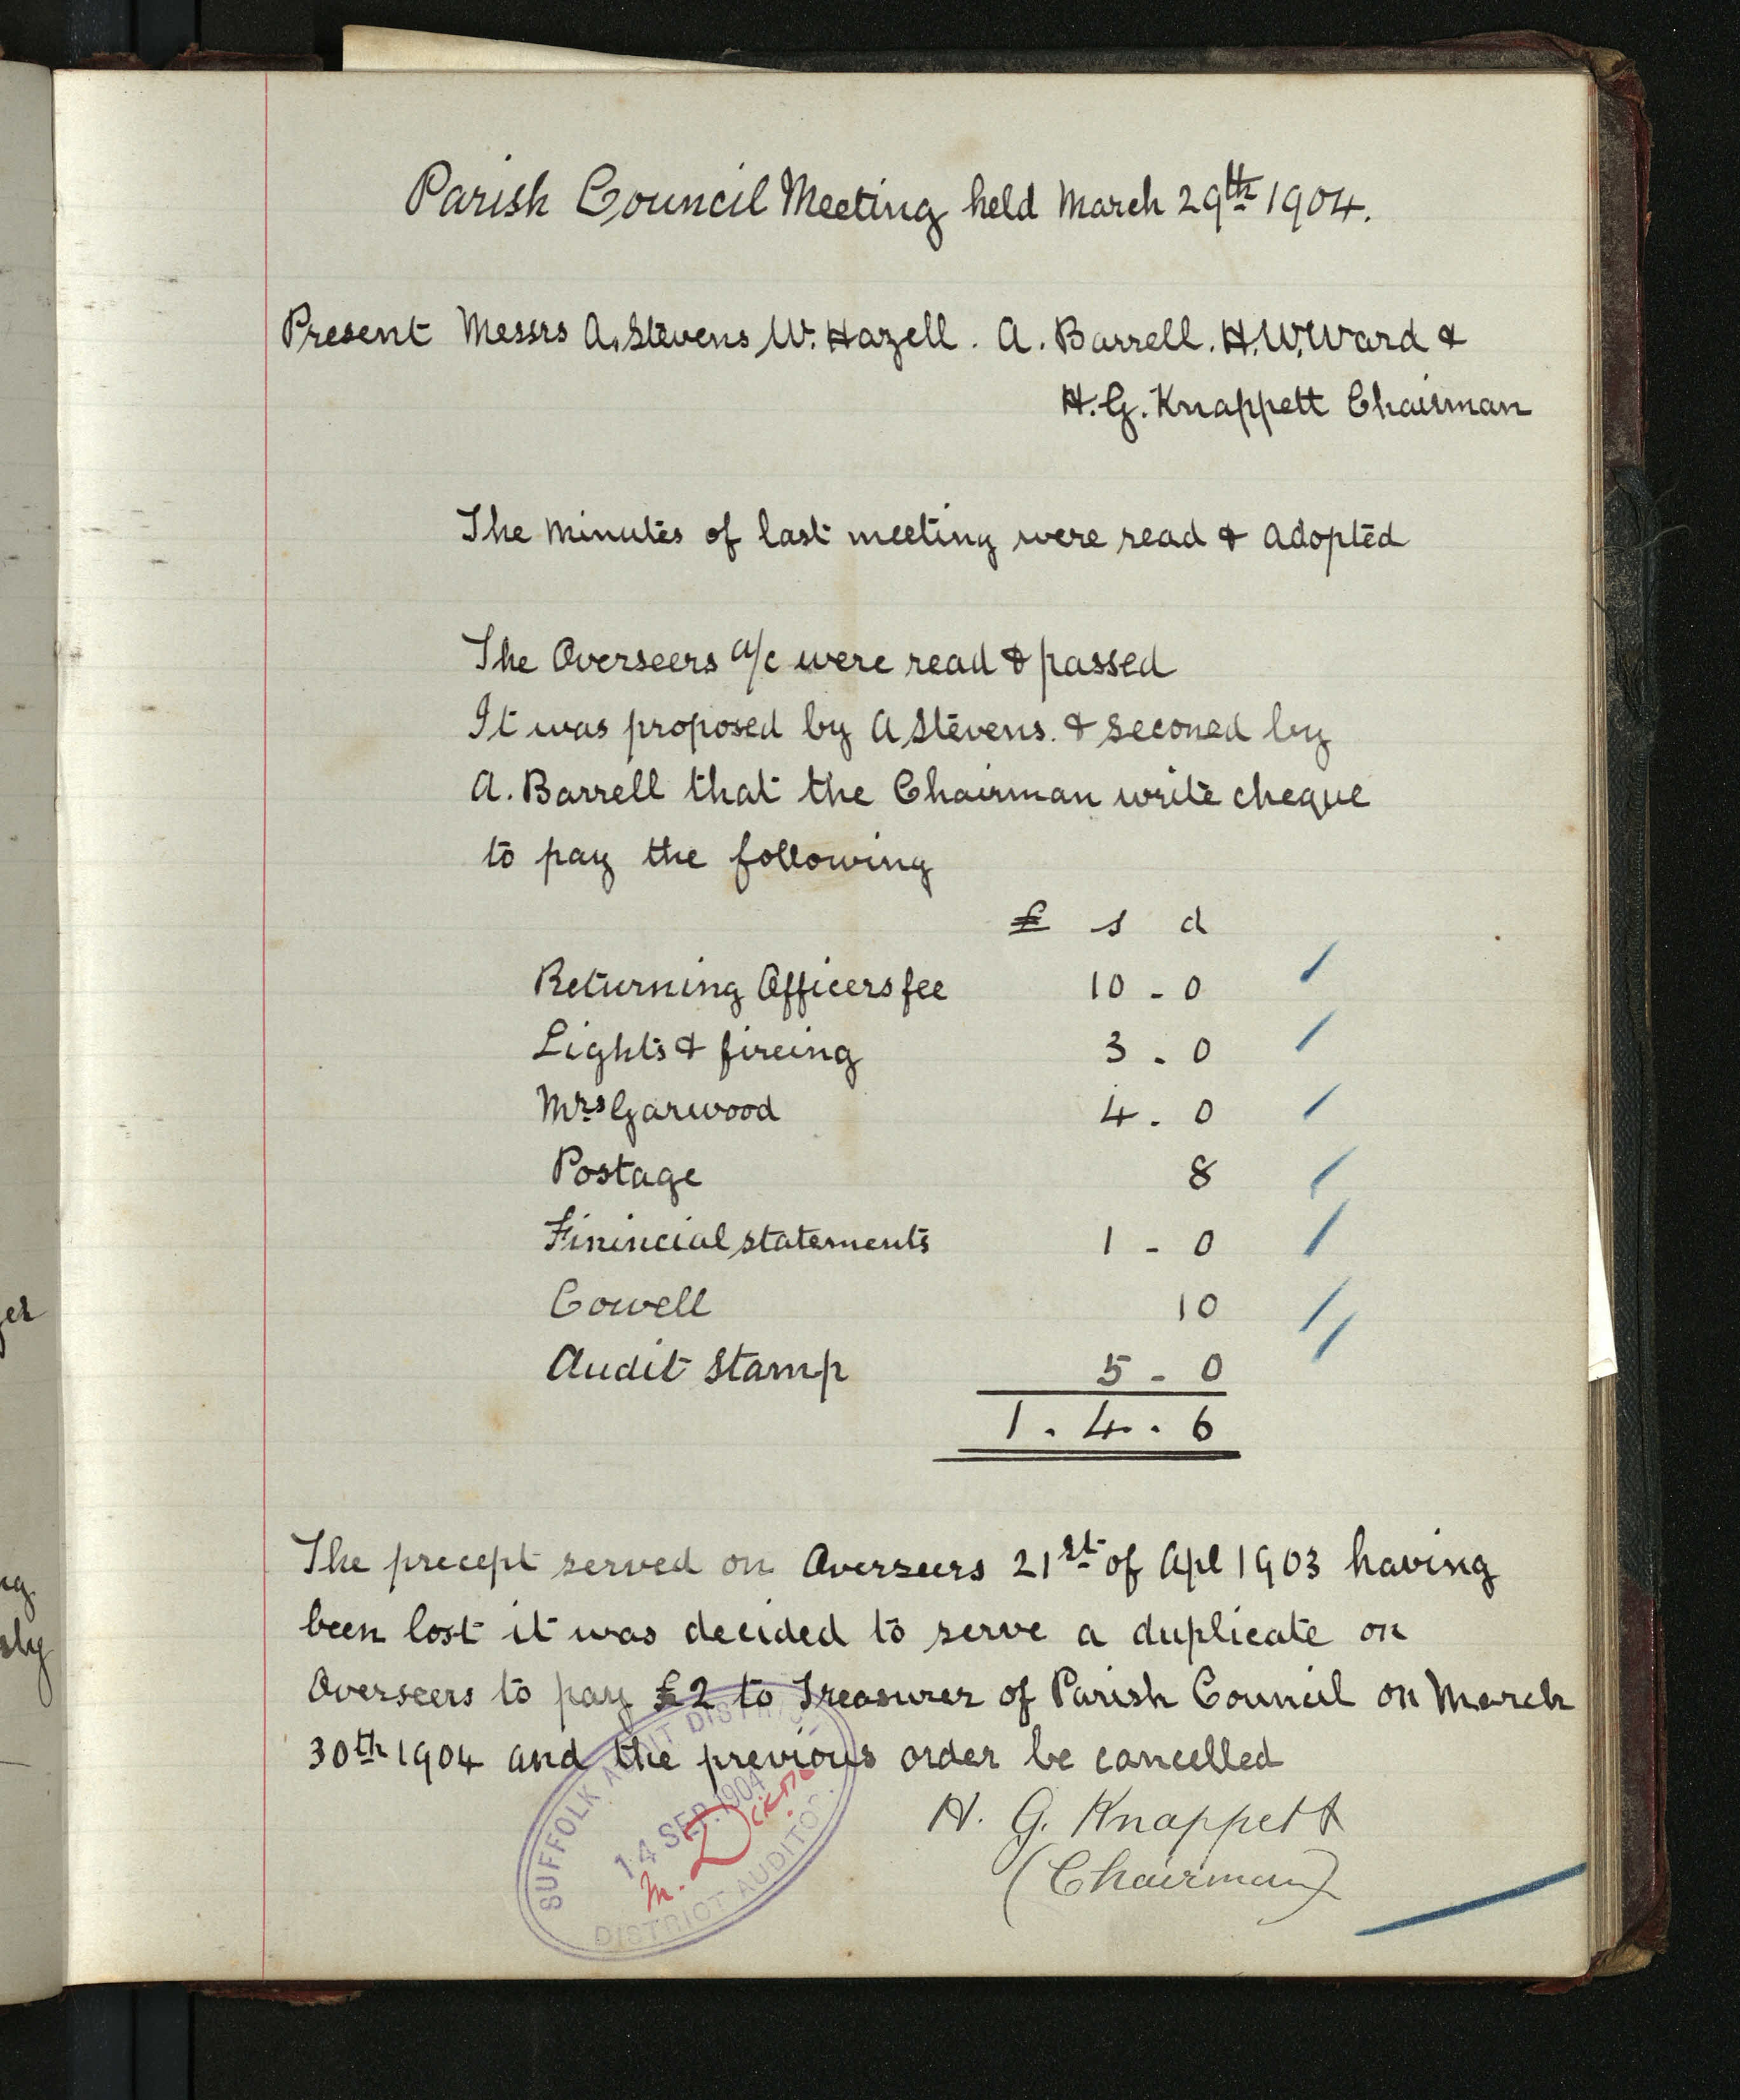 Parish Council Meeting held March 29th 1904.
Present Messrs A. Stevens, W. Hazell. A. Barrell. H. W. Ward &
H. G. Knappett Chairman
The Minutes of last meeting were read & adopted
The Overseers a/c were read & passed
It was proposed by A Stevens. & seconed by
A. Barrell that the Chairman write cheque
to pay the following
£ s d
Returning Officers fee 10 - 0
Lights & fireing 3 - 0
Mrs Garwood 4 . 0
Postage 8
Finincial statements 1 - 0
Cowell 10
Audit Stamp 5 - 0
1 . 4 . 6
The precept served on Overseers 21st of Apl 1903 having
been lost it was decided to serve a duplicate on
Overseers to pay £2 to Treasurer of Parish Council on March
30th 1904 and the previous order be cancelled
H. G. Knappett
(Chairman)
SUFFOLK AUDIT DISTRICT
14 SEP. 1904
DISTRICT AUDITOR.